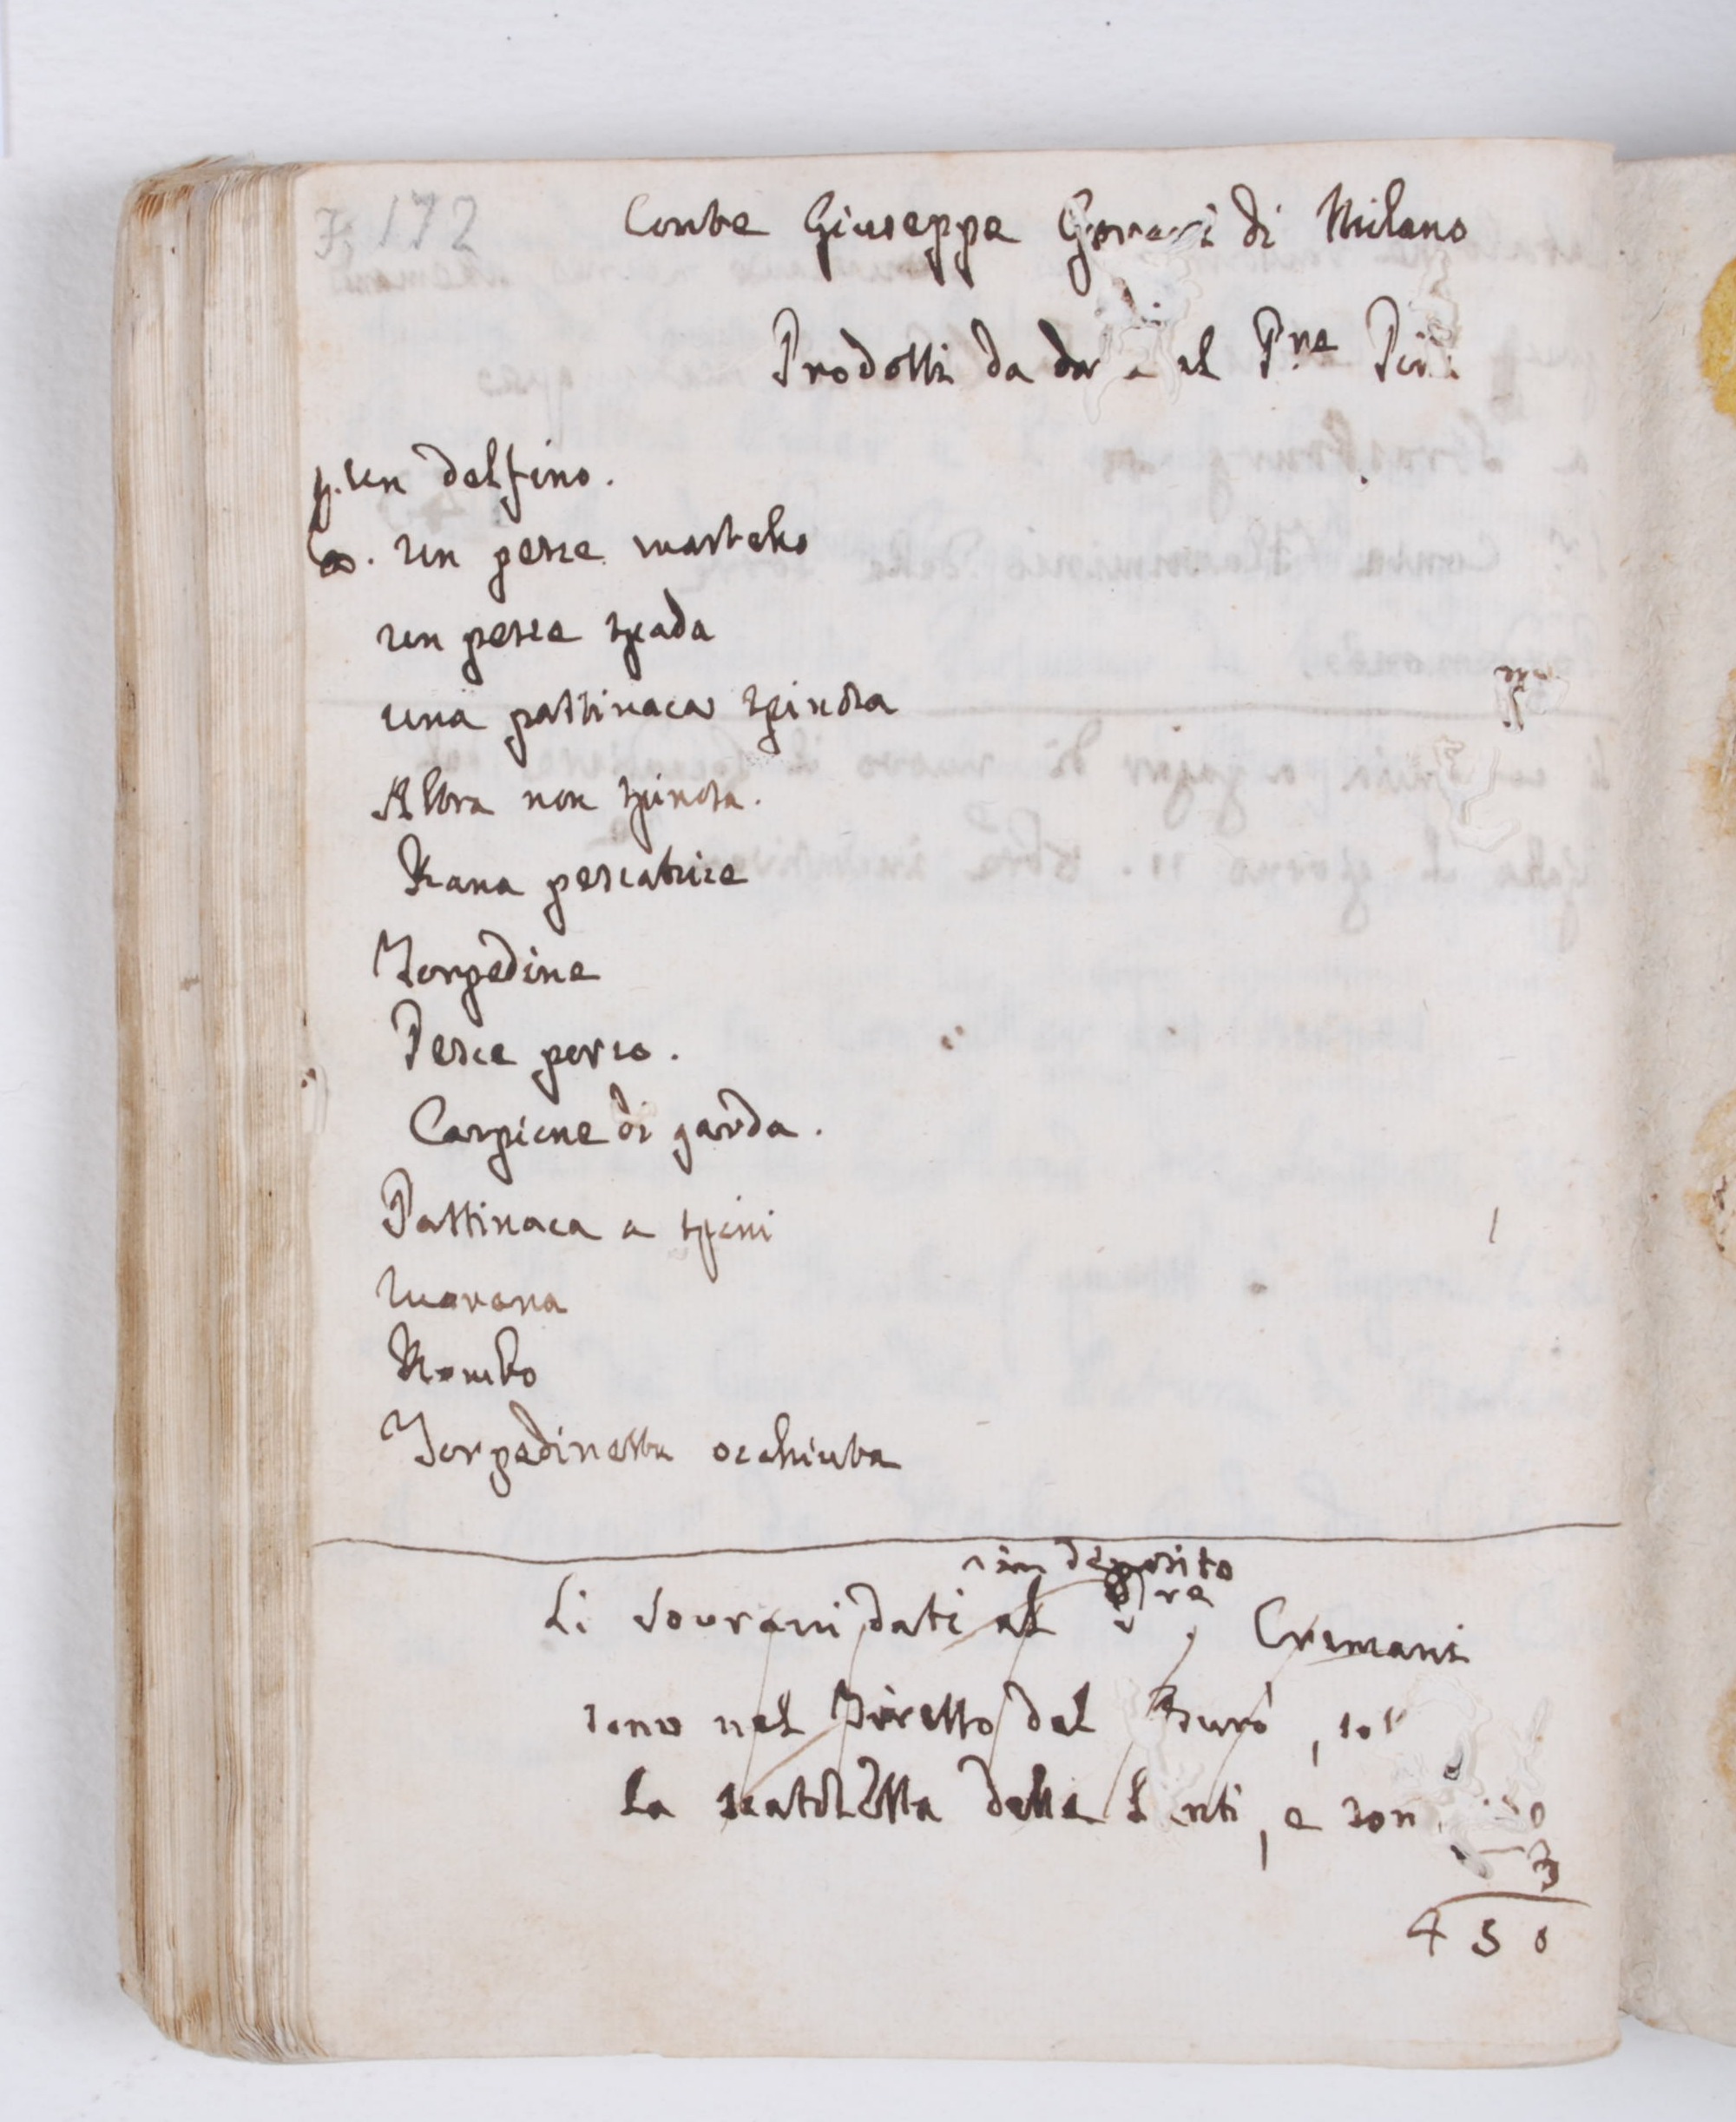 F. 172
Conte Giuseppe Gorani di Milano
Prodotti da dar al P.re Pini
Un delfino.
Un pesce martello
Un pesce spada
una pastinaca spinosa
Altra non spinosa.
Rana pescatrice
Torpedine
Pesce porco.
Carpione di garda.
Pastinaca a spini
murena
Rombo
Torpedinetta occhiuta
in deposito
Li Sovrani dati al Cremani
sono nel Tiretto del Burò, sot
La scatoletta delle Lenti, e son
3
450